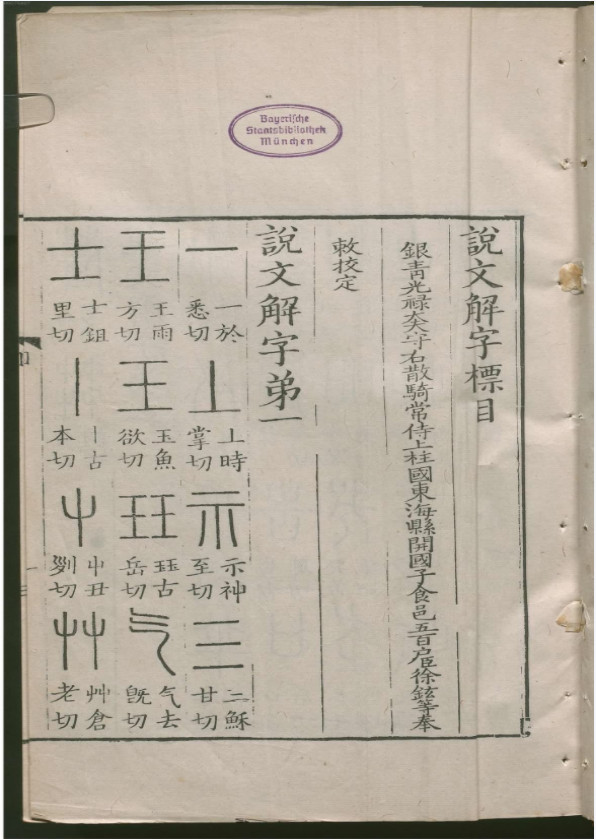 Bayerische
Staatsbibliothek
München
說文解字標目
銀青光祿大夫守右散騎常侍上柱國東海縣開國子食邑五百戶臣徐鉉等奉
敕校定
說文解字弟一
一 一於悉切 丄 丄時掌切 示 示神至切 三 三穌甘切
王 王雨方切 玉 玉魚欲切 玨 玨古岳切 气 气去旣切
士 士鉏里切 丨 丨古本切 屮 屮丑列切 艸 艸倉老切